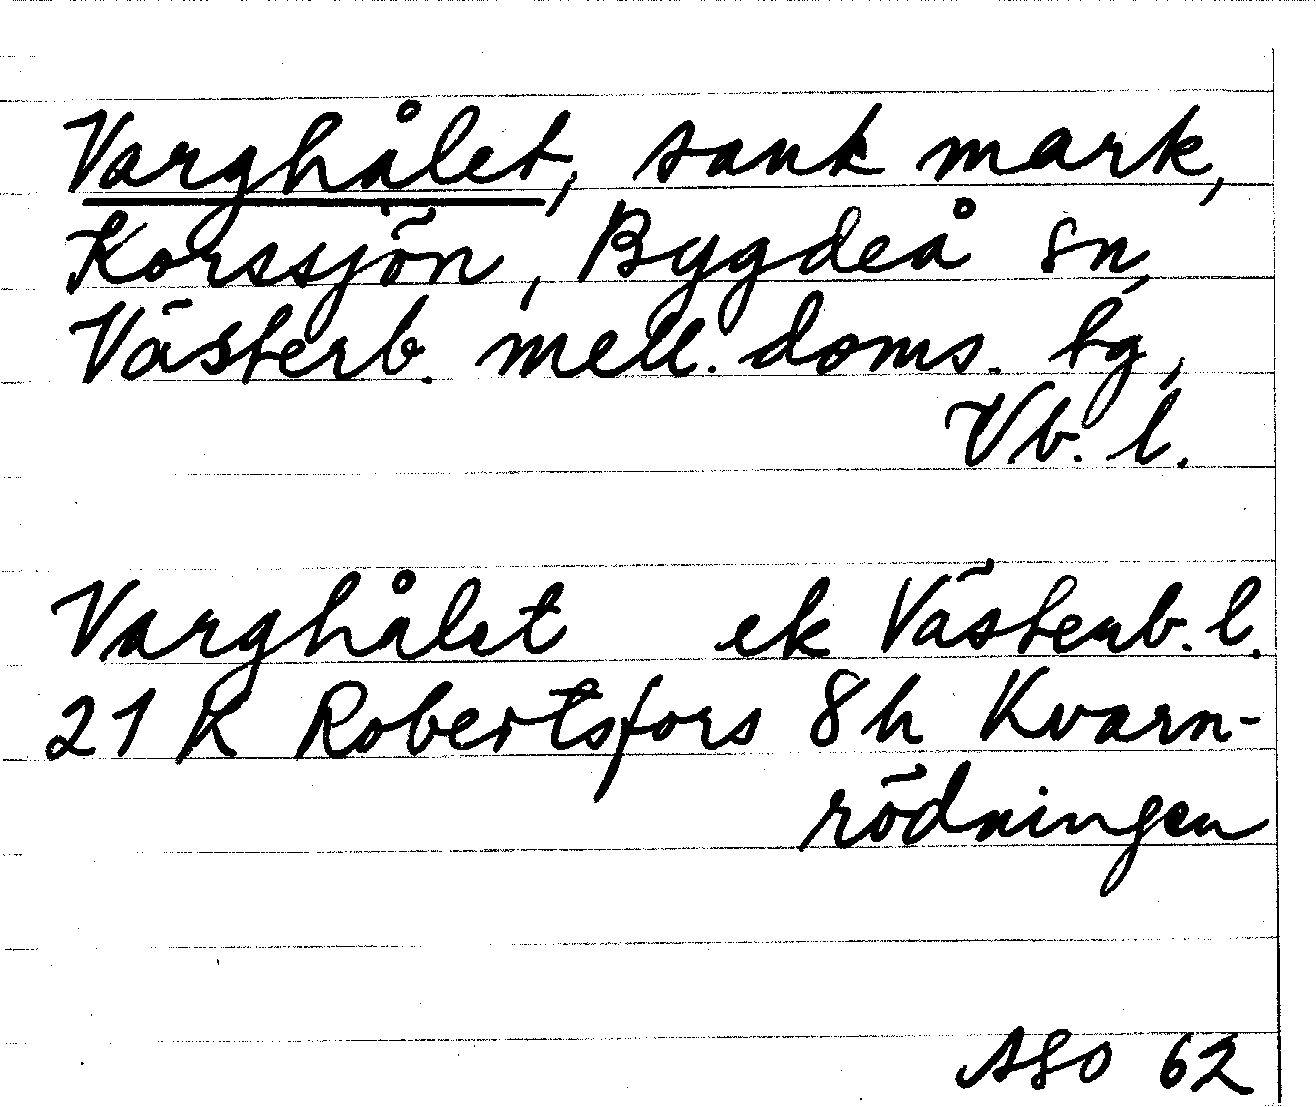 Varghålet, sank mark,
Korssjön, Bygdeå sn,
Västerb. mell. doms. tg,
Vb. l.
Varghålet ek Västerb. l.
21 K Robertsfors 8h Kvarn-
rödningen
ASO 62